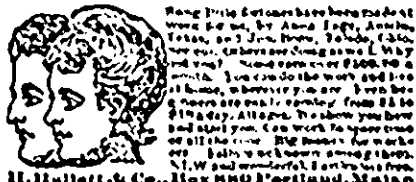 little fortunes have been made at
work for us, by Anna Page, Austin,
Texas, and Jno. Bonn, Toledo, Ohio.
See cut. Others are doing as well. Why
not you? Some earn over $500.00 a
month. You can do the work and live
at home, wherever you are. Even be-
ginners are easily earning from $5 to
$10 a day. All ages. We show you how
and start you. Can work in spare time
or all the time. Big money for work-
ers. Failure unknown among them.
NEW and wonderful. Particulars free.
H. Hallett & Co., Box 880 Portland, Maine